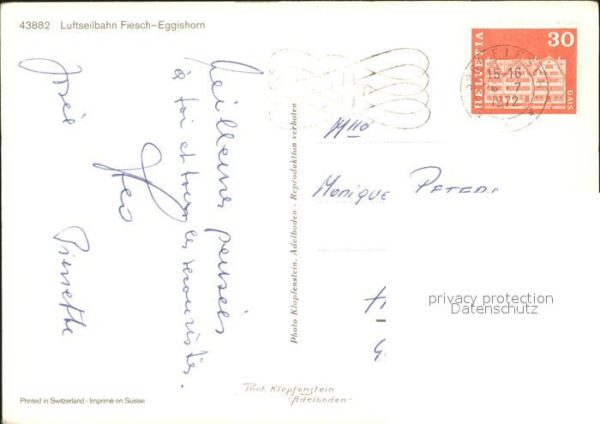 43882 Luftseilbahn Fiesch–Eggishorn
HELVETIA
30
GAIS
15-16
7
1972
Meilleures pensées
à toi et tous les
José
Pierrette
Photo Klopfenstein, Adelboden - Reproduktion verboten
Mlle
Monique
privacy protection
Datenschutz
Phot. Klopfenstein
-Adelboden-
Printed in Switzerland - Imprimé en Suisse